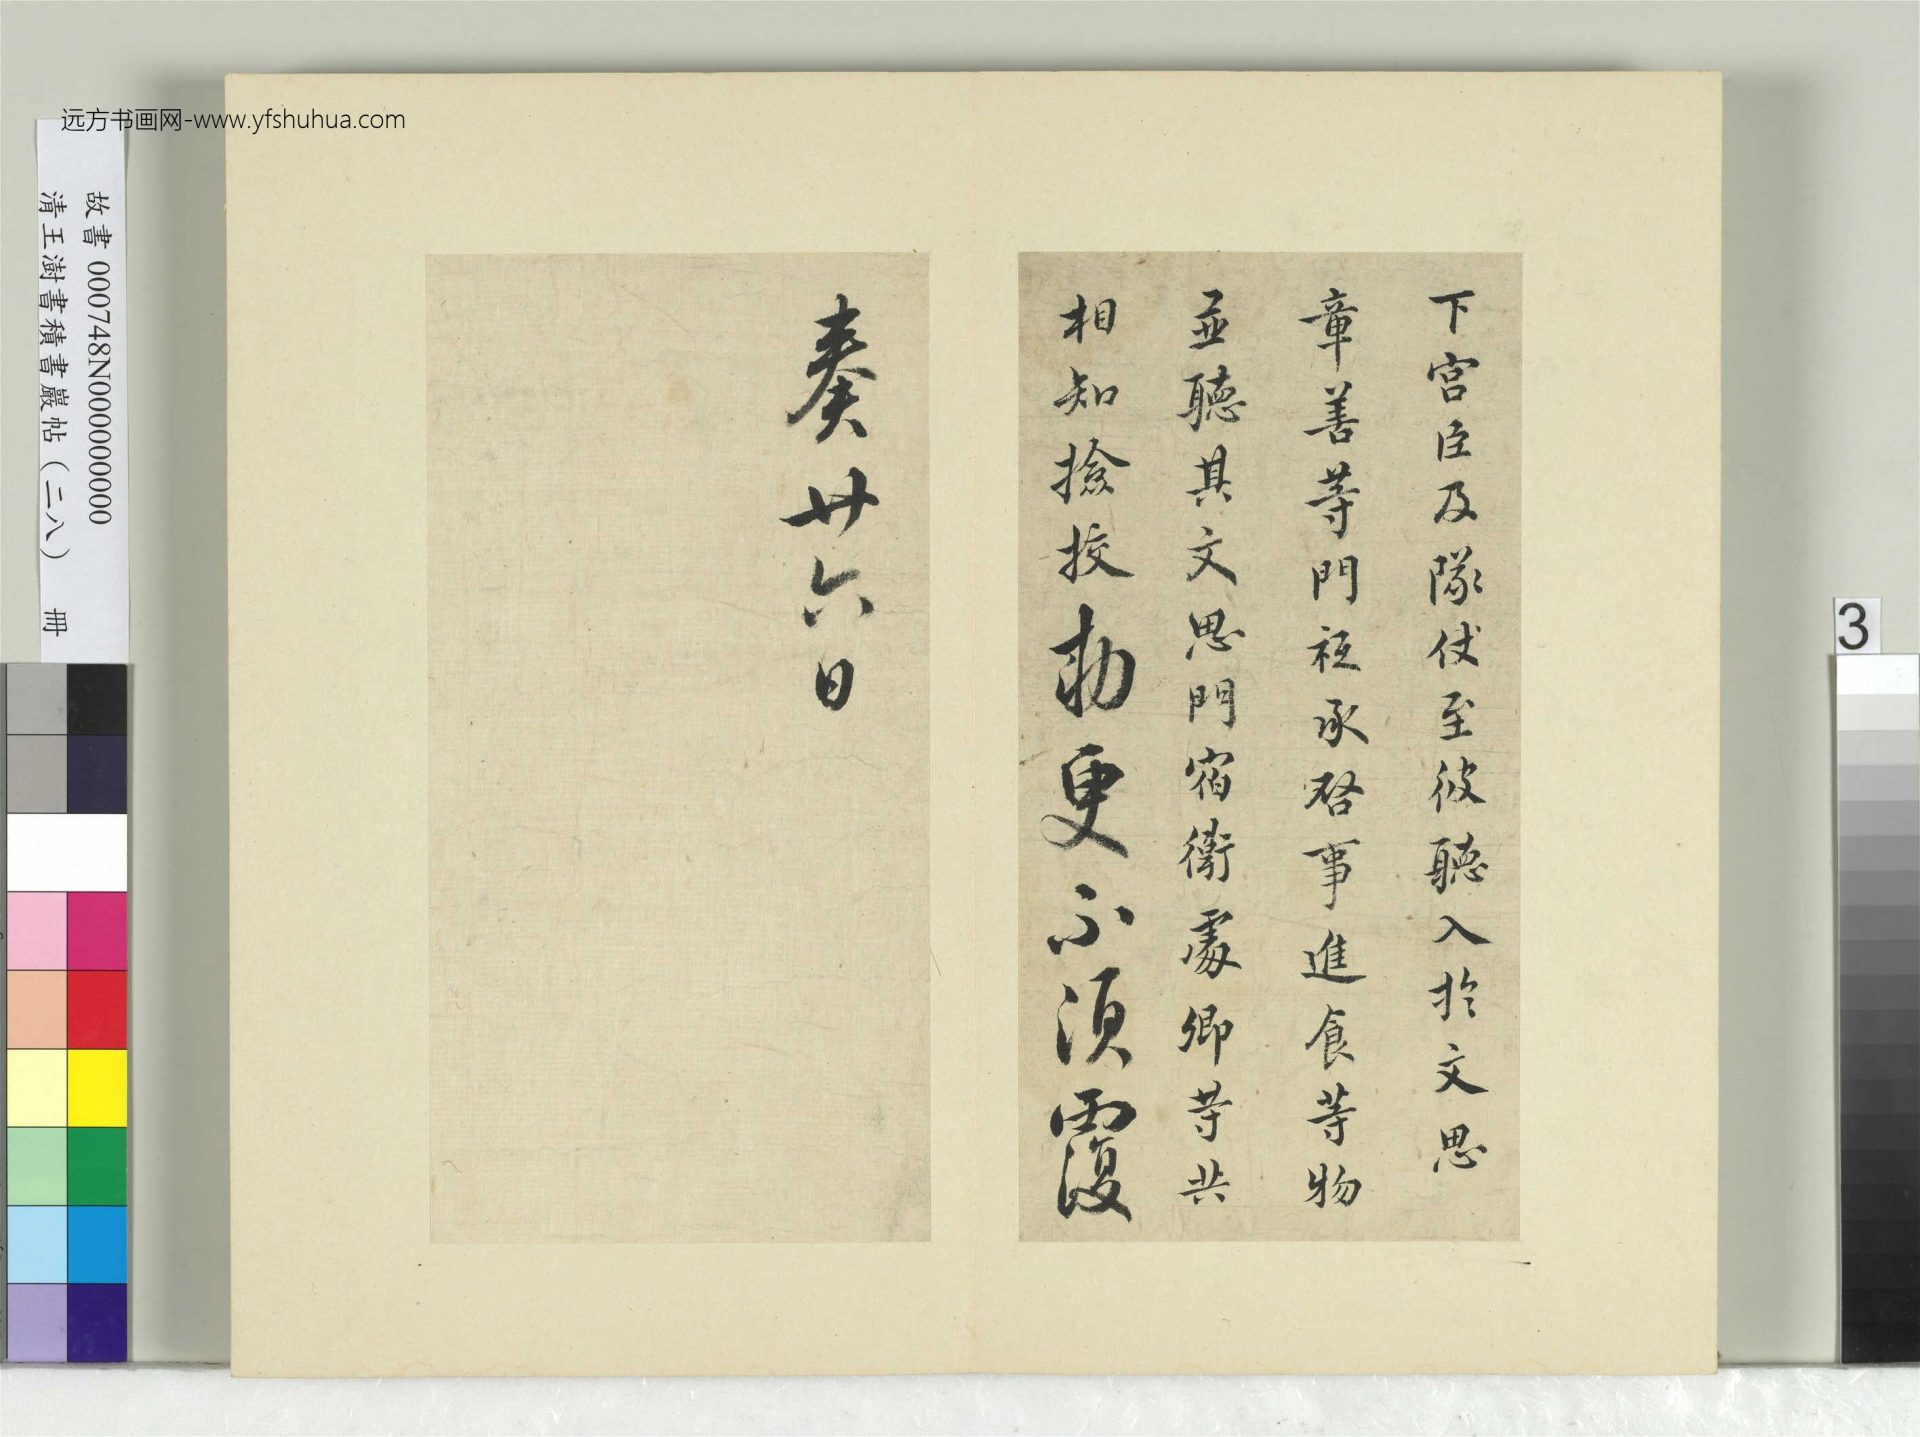 远方书画网-www.yfshuhua.com
故書 000748N000000000
清王澍書積書巖帖(二八) 冊
下宮臣及隊仗至彼聽入於文思
章善等門祗承啓事進食等物
並聽其文思門宿衛處卿等共
相知撿挍勅更不須覆
奏廿六日
3